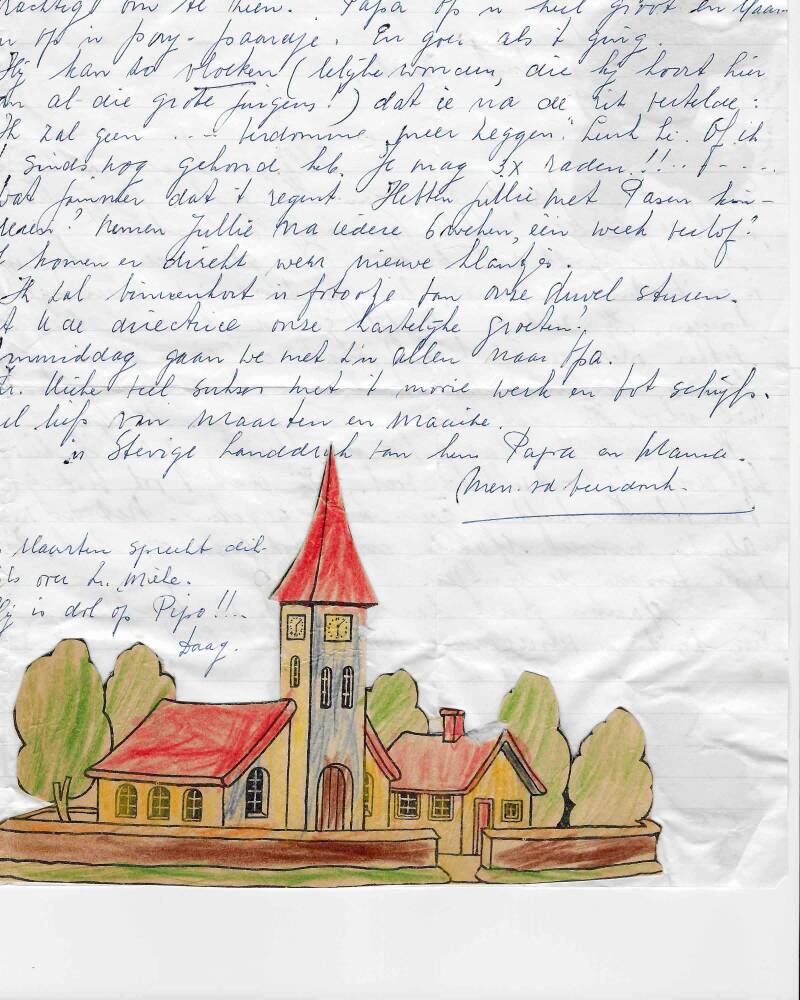 prachtig om te zien. Papa op 'n heel groot en Maar-
n op 'n pony-paardje. En goed als 't ging.
Hij kan zo vloeken (lelijke woorden, die hij hoort hier
an al die grote jongens!) dat ie na de rit vertelde:
"Ik zal geen .... verdomme meer zeggen." Leuk hè. Of ik
sinds nog gehoord heb. Je mag 3x raden!!..
wat jammer dat 't regent. Hebben jullie met Pasen kin-
deren? Nemen jullie na iedere 6 weken, één week verlof?
komen er direkt weer nieuwe klantjes.
Ik zal binnenkort 'n fotootje van onze duvel sturen.
U de directrice onze hartelijke groeten.
middag gaan we met z'n allen naar Opa.
Zr. Mieke veel sukses met 't mooie werk en tot schrijfs.
liefs van Maarten en Maaike.
'n Stevige handdruk van hun Papa en Mama.
Maarten spreekt dik-
ls over Zr. Mieke.
Hij is dol op Pipo!!..
Daag.